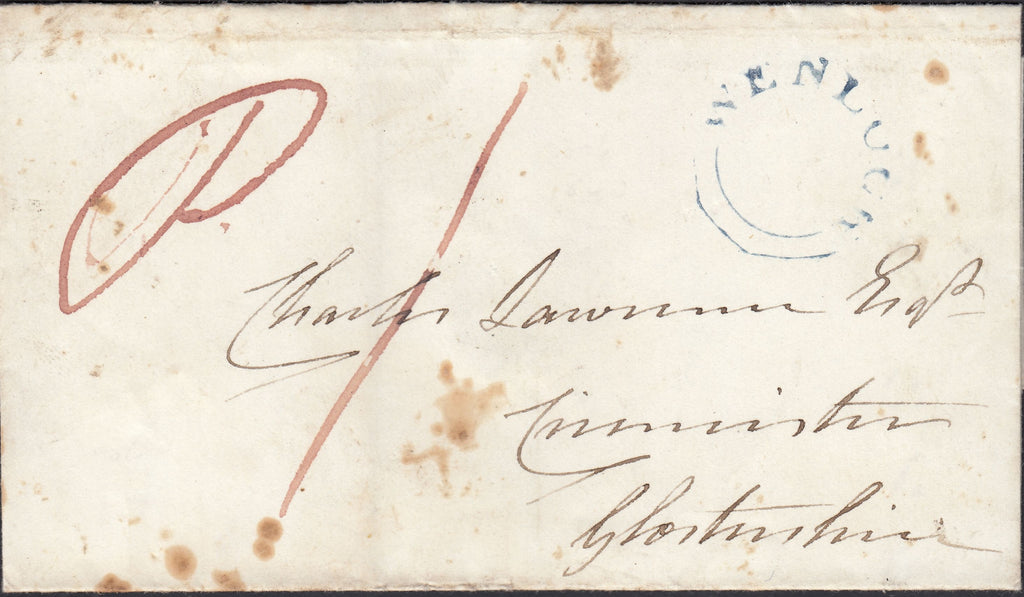 WENLOCK
P. 1
Charles Lawrence Esqr
Cirencester
Glostershire